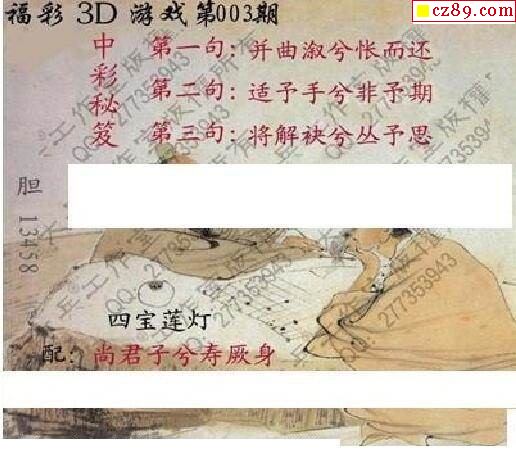 福彩 3D 游戏第003期
cz89.com
中彩秘笈
第一句：并曲溆兮怅而还
第二句：适予手兮非予期
第三句：将解袂兮丛予思
胆 13458
四宝莲灯
配：尚君子兮寿厥身
工作室版權所有
QQ：277353943